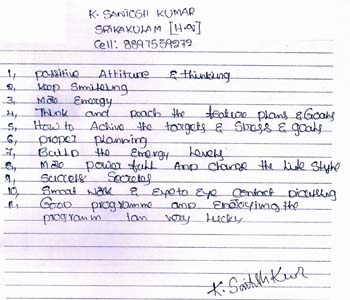 K. SANTOSH KUMAR
SRIKAKULAM
Cell: 8897559279
1, possitive Attitude & thinking
2, Keep Smilling
3, More Energy
4, Think and reach the feature plans & Goals
5, How to Achive the targets & Stress & goals
6, proper Planning
7, Build the Energy Levels
8, More power full And change the Life Style
9, Success Secretes
10, Smart Work & Eye to Eye Contact
11, Good programme and Enjoying the
programm I am very Lucky